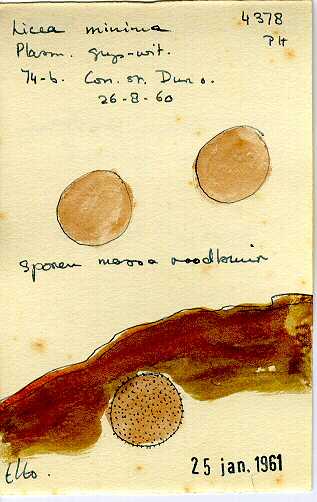 Licea minima
4378
PH
Plasm. grys-wit.
74-b. Con. st. Dun o.
26-8-60
sporen massa roodbruin
Elto.
25 jan. 1961